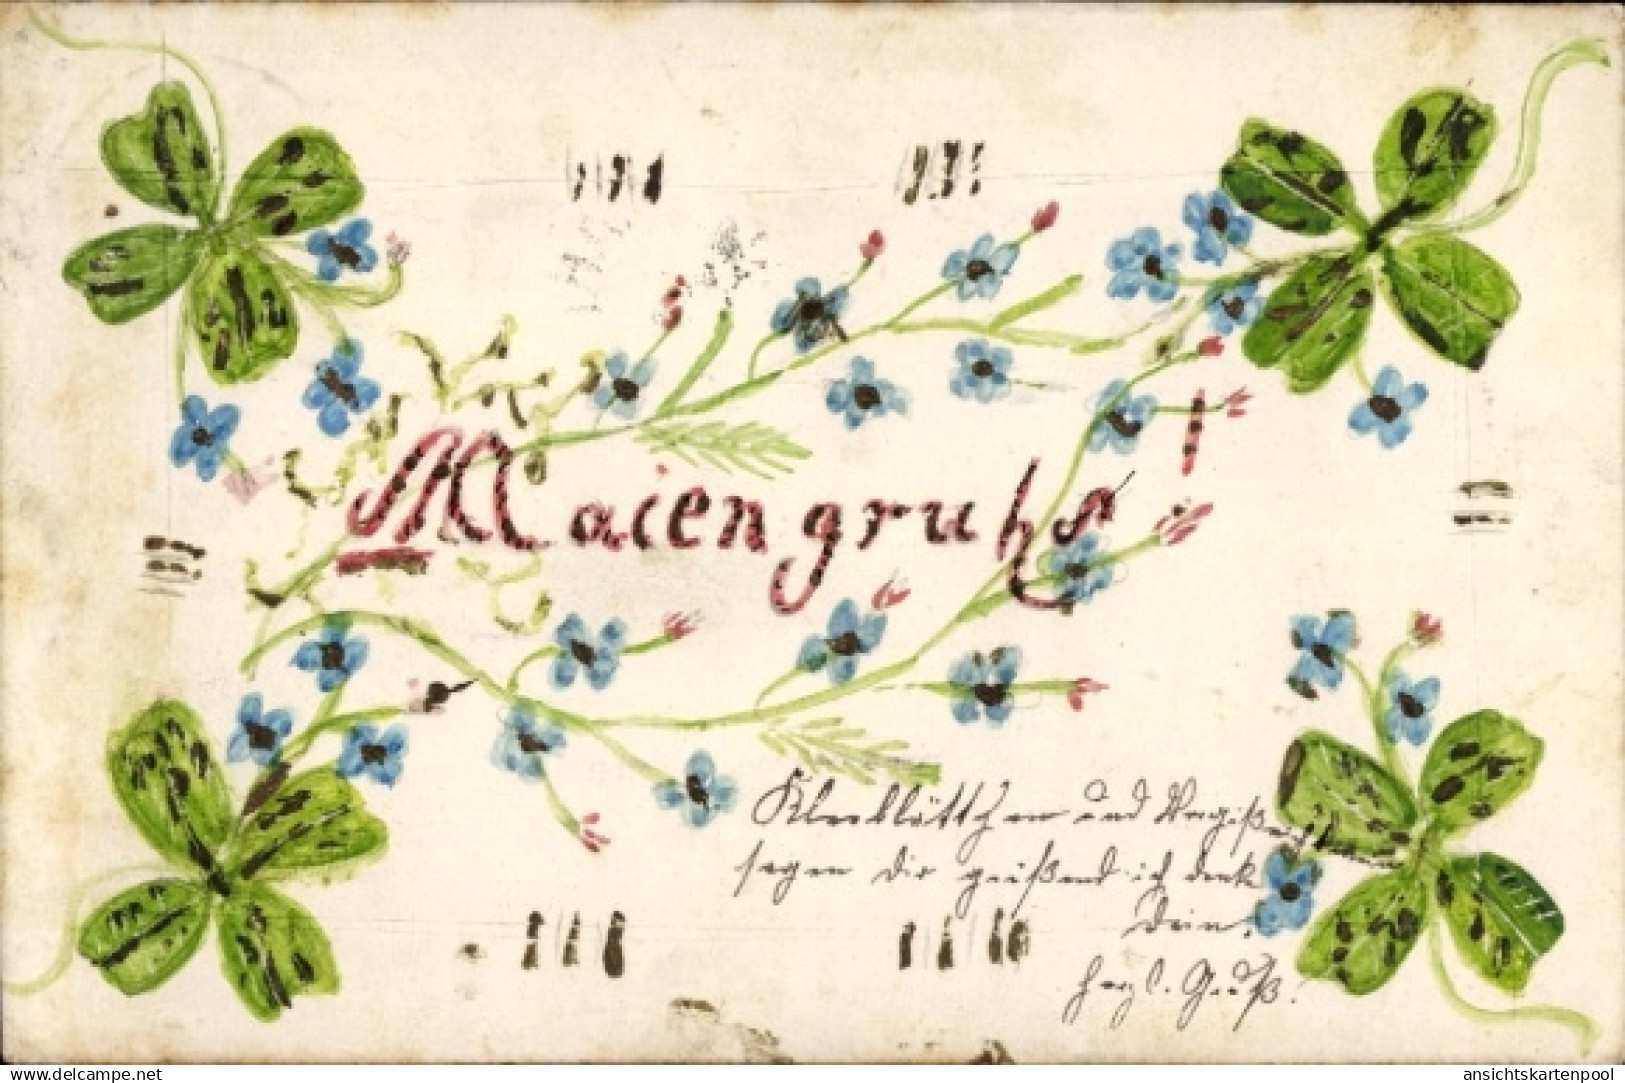 Maiengruhs!
Kleeblättchen und Vergißmeinnicht
sagen Dir grüßend ich denk
Dein.
Herzl. Gruß.
www.delcampe.net
ansichtskartenpool